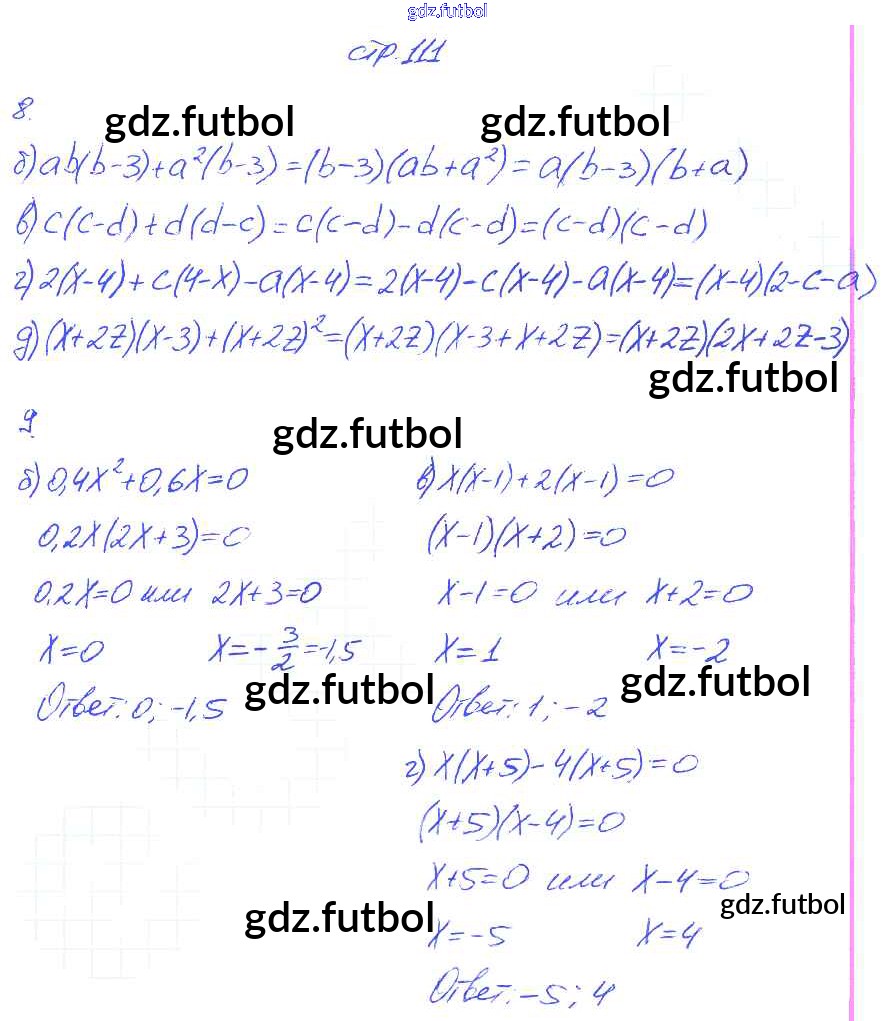 gdz.futbol
стр. 111
8.
gdz.futbol gdz.futbol
б) ab(b-3)+a²(b-3)=(b-3)(ab+a²)=a(b-3)(b+a)
в) c(c-d)+d(d-c)=c(c-d)-d(c-d)=(c-d)(c-d)
г) 2(x-4)+c(4-x)-a(x-4)=2(x-4)-c(x-4)-a(x-4)=(x-4)(2-c-a)
д) (x+2z)(x-3)+(x+2z)²=(x+2z)(x-3+x+2z)=(x+2z)(2x+2z-3)
gdz.futbol
9.
gdz.futbol
б) 0,4x²+0,6x=0
0,2x(2x+3)=0
0,2x=0 или 2x+3=0
x=0 x=-3/2=-1,5
Ответ: 0; -1,5
gdz.futbol
в) x(x-1)+2(x-1)=0
(x-1)(x+2)=0
x-1=0 или x+2=0
x=1 x=-2
Ответ: 1; -2
gdz.futbol
г) x(x+5)-4(x+5)=0
(x+5)(x-4)=0
x+5=0 или x-4=0
gdz.futbol
gdz.futbol
x=-5 x=4
Ответ: -5; 4